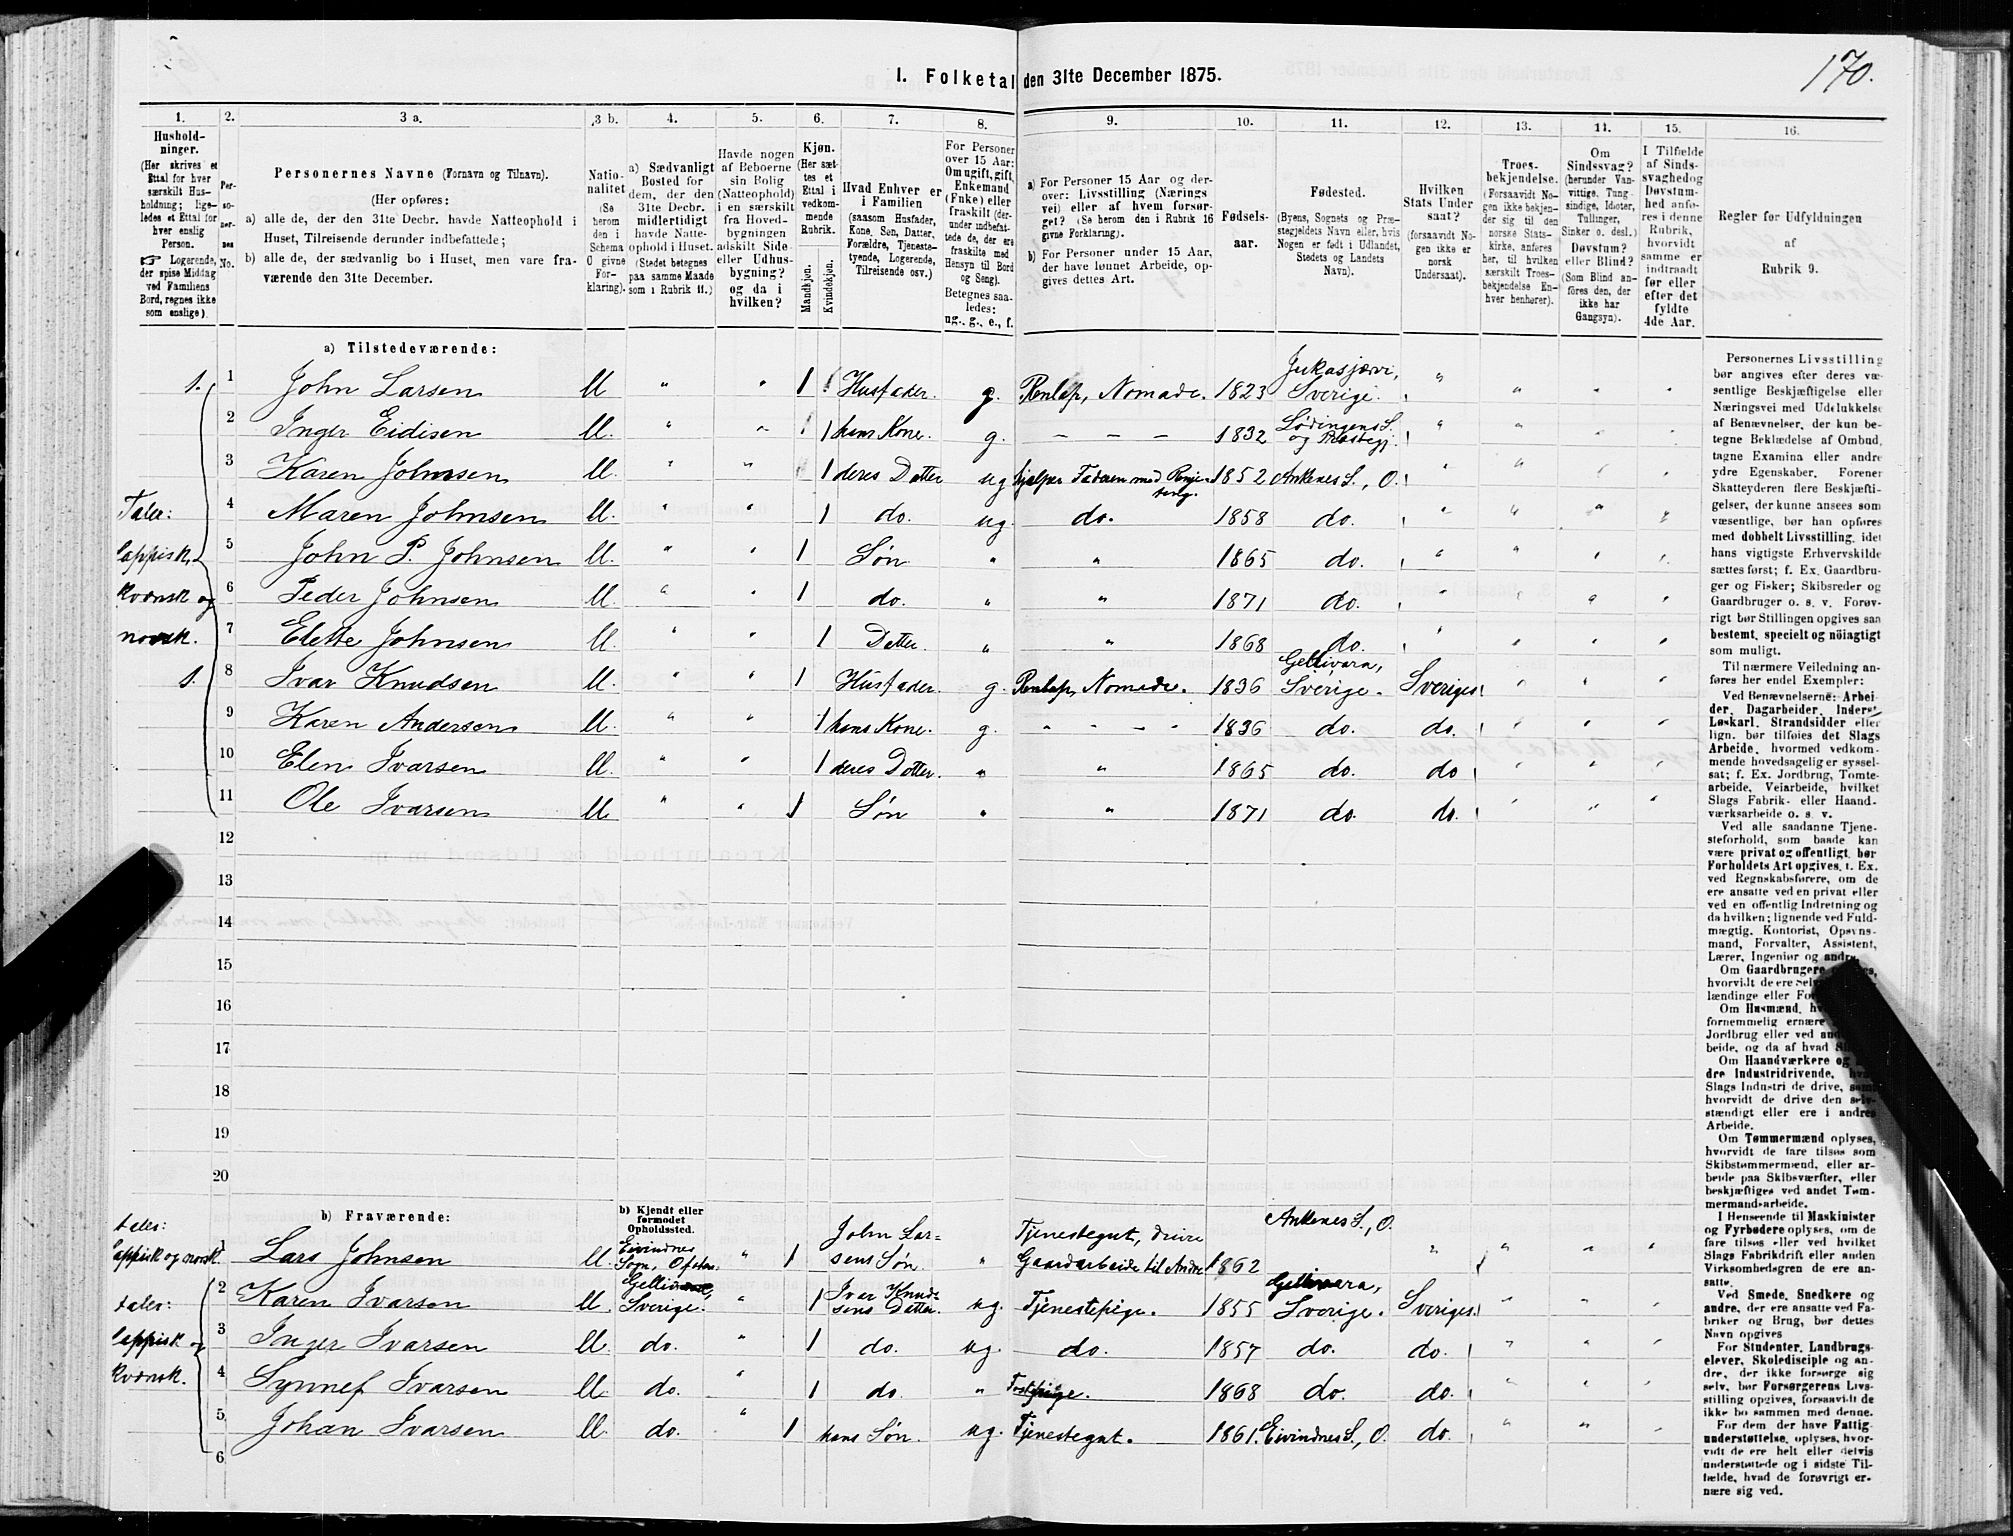 170.
I. Folketal den 31te December 1875.
1. 2. 3 a. 3 b. 4. 5. 6. 7. 8. 9. 10. 11. 12. 13. 14. 15. 16.
Hushold-
ninger.
(Her skrives et
Ettal for hver
særskilt Hus-
holdning; lige-
ledes et Ettal for
hver enslig
Person.
☞ Logerende,
der spise Middag
ved Familiens
Bord, regnes ikke
som enslige).
Per-
so-
ner-
nes
No.
Personernes Navne (Fornavn og Tilnavn).
(Her opføres:
a) alle de, der den 31te Decbr. havde Natteophold i
Huset, Tilreisende derunder indbefattede;
b) alle de, der sædvanlig bo i Huset, men vare fra-
værende den 31te December.
Natio-
nalitet
(Se
herom
den i
Schema
O givne
For-
klaring).
a) Sædvanligt
Bosted for
dem, der den
31te Decbr.
midlertidigt
havde Natte-
ophold i Huset.
(Stedet betegnes
paa samme Maade
som i Rubrik 11.)
Havde nogen
af Beboerne
sin Bolig
(Natteophold)
i en særskilt
fra Hoved-
bygningen
adskilt Side-
eller Udhus-
bygning?
og da i
hvilken?
Kjøn.
(Her sæt-
tes et
Ettal i
vedkom-
mende
Rubrik.
Mandkjøn.
Kvindekjøn.
Hvad Enhver er
i Familien
(saasom Husfader,
Kone, Søn, Datter,
Forældre, Tjeneste-
tyende, Logerende,
Tilreisende osv.)
For Personer
over 15 Aar:
Om ugift, gift,
Enkemand
(Enke) eller
fraskilt (der-
under indbefat-
tede de, der ere
fraskilte med
Hensyn til Bord
og Seng).
Betegnes saa-
ledes:
ug., g., e., f.
a) For Personer 15 Aar og der-
over: Livsstilling (Nærings
vei) eller af hvem forsør-
get? (Se herom den i Rubrik 16
givne Forklaring).
b) For Personer under 15 Aar,
der have lønnet Arbeide, op-
gives dettes Art.
Fødsels-
aar.
Fødested.
(Byens, Sognets og Præ-
stegjeldets Navn eller, hvis
Nogen er født i Udlandet,
Stedets og Landets
Navn).
Hvilken
Stats Under
saat?
(forsaavidt No-
gen ikke er
norsk
Undersaat).
Troes-
bekjendelse.
(Forsaavidt No-
gen ikke bekjen-
der sig til den
norske Stats-
kirke, anføres
her, til hvilken
særskilt Troes-
bekjendelse En-
hver henhører).
Om
Sindssvag?
(herunder Van-
vittige, Tung-
sindige, Idioter,
Tullinger,
Sinker o. desl.)
Døvstum?
eller Blind?
(Som Blind an-
føres den, der
ikke har
Gangsyn).
I Tilfælde
af Sinds-
svaghed og
Døvstum-
hed anfø-
res i denne
Rubrik,
hvorvidt
samme er
indtraadt
før eller
efter det
fyldte
4de Aar.
Regler før Udfyldningen
af
Rubrik 9.
a) Tilstedeværende:
1. 1 John Larsen M " " 1 Husfader. g. Renlap, Nomade. 1823 Jukasjærvi, Sverige. " " " "
2 Inger Eidisen M. " " 1 hans Kone. g. – – – 1832 Lødingens S. og Præstegj. " " " "
3 Karen Johnsen M. " " 1 deres Datter ug hjelper Faderen med 1852 Ankenes S., O. " " " "
Taler: 4 Maren Johnsen M. " " 1 do. ug. do. 1858 do. " " " "
lappisk, 5 John P. Johnsen M. " " 1 Søn " " 1865 do. " " " "
kvænsk og 6 Peder Johnsen M. " " 1 do. " " 1871 do. " " " "
norsk. 7 Elette Johnsen M. " " 1 Datter. " " 1868 do. " " " "
1. 8 Ivar Knudsen M. " " 1 Husfader. g. Renlap, Nomade. 1836 Gellivara, Sverige. Sveriges. " " "
9 Karen Andersen M. " " 1 hans Kone. g. " " " " 1836 do. do. " " "
10 Elen Ivarsen M. " " 1 deres Datter. " " 1865 do. do " " "
11 Ole Ivarsen M. " " 1 Søn " " 1871 do. do. " " "
12
13
14
15
16
17
18
19
20
b) Fraværende:
b) Kjendt eller
formodet
Opholdssted.
taler:
lappisk og norsk. 1 Lars Johnsen M. Eivindnes Sogn, Ofoten. " 1 John Larsens Søn. " Tjenestegut, drive Gaardarbeide til Andre 1862 Ankenes S., O. " " " "
taler: 2 Karen Ivarsen M. Gellivare, Sverige. " 1 Ivar Knudsens Datter. ug. Tjenestepige. 1855 Gellivara, Sverige. Sveriges. " " "
lappisk og 3 Inger Ivarsen M. do. " 1 do. ug. do. 1857 do. do. " " "
kvænsk. 4 Synnef Ivarsen M. do. " 1 do. " 1868 do. do. " " "
5 Johan Ivarsen M. do. " 1 hans Søn. ug. Tjenestegut. 1861. Eivindnes S., O. do. " " "
6
Personernes Livsstilling
bør angives efter deres væ-
sentlige Beskjæftigelse eller
Næringsvei med Udelukkelse
af Benævnelser, der kun be-
tegne Beklædelse af Ombud,
tagne Examina eller andre
ydre Egenskaber. Forener
Skatteyderen flere Beskjæfti-
gelser, der kunne ansees som
væsentlige, bør han opføres
med dobbelt Livsstilling, idet
hans vigtigste Erhvervskilde
sættes først; f. Ex. Gaardbru-
ger og Fisker; Skibsreder og
Gaardbruger o. s. v. Forøv-
rigt bør Stillingen opgives saa
bestemt, specielt og nöiagtigt
som muligt.
Til nærmere Veiledning an-
føres her endel Exempler:
Ved Benævnelserne: Arbei-
der, Dagarbeider, Inderst
Løskarl, Strandsidder eller
lign. bør tilføies det Slags
Arbeide, hvormed vedkom-
mende hovedsagelig er syssel-
sat; f. Ex. Jordbrug, Tomte-
arbeide, Veiarbeide, hvilket
Slags Fabrik- eller Haand-
værksarbeide o. s. v.
Ved alle saadanne Tjene-
steforhold, som baade kan
være privat og offentligt, bør
Forholdets Art opgives, t. Ex.
ved Regnskabsførere, om de
ere ansatte ved en privat eller
ved en offentlig Indretning og
da hvilken; lignende ved Fuld-
mægtig, Kontorist, Opsyns-
mand, Forvalter, Assistent,
Lærer, Ingeniør og andre.
Om Gaardbrugere
hvorvidt de ere
lændinge eller
Om Husmænd,
fornemmelig ernære
Jordbrug eller ved
beide, og da af hvad
Om Haandværkere og
dre Industridrivende,
Slags Industri de drive, samt
hvorvidt de drive den selv-
stændigt eller ere i andres
Arbeide.
Om Tømmermænd oplyses,
hvorvidt de fare tilsøs som
Skibstømmermænd, eller ar-
beide paa Skibsværfter, eller
beskjæftiges ved andet Tøm-
mermandsarbeide.
I Henseende til Maskinister
og Fyrbødere oplyses, om de
fare tilsøs eller ved hvilket
Slags Fabrikdrift eller anden
Virksomhedsgren de ere an-
satte.
Ved Smede, Snedkere og
andre, der ere ansatte ved Fa-
briker og Brug, bør dettes
Navn opgives
For Studenter, Landbrugs-
elever, Skoledisciple og an-
dre, der ikke forsørge sig
selv, bør Forsørgerens Livs-
stilling opgives, forsaavidt de
ikke bo sammen med denne.
For dem, der have Fattig-
understøttelse, oplyses, hvor-
vidt de ere helt eller delvis
understøttede og i sidste Til-
fælde, hvad de forøvrigt er-
nære sig ved.